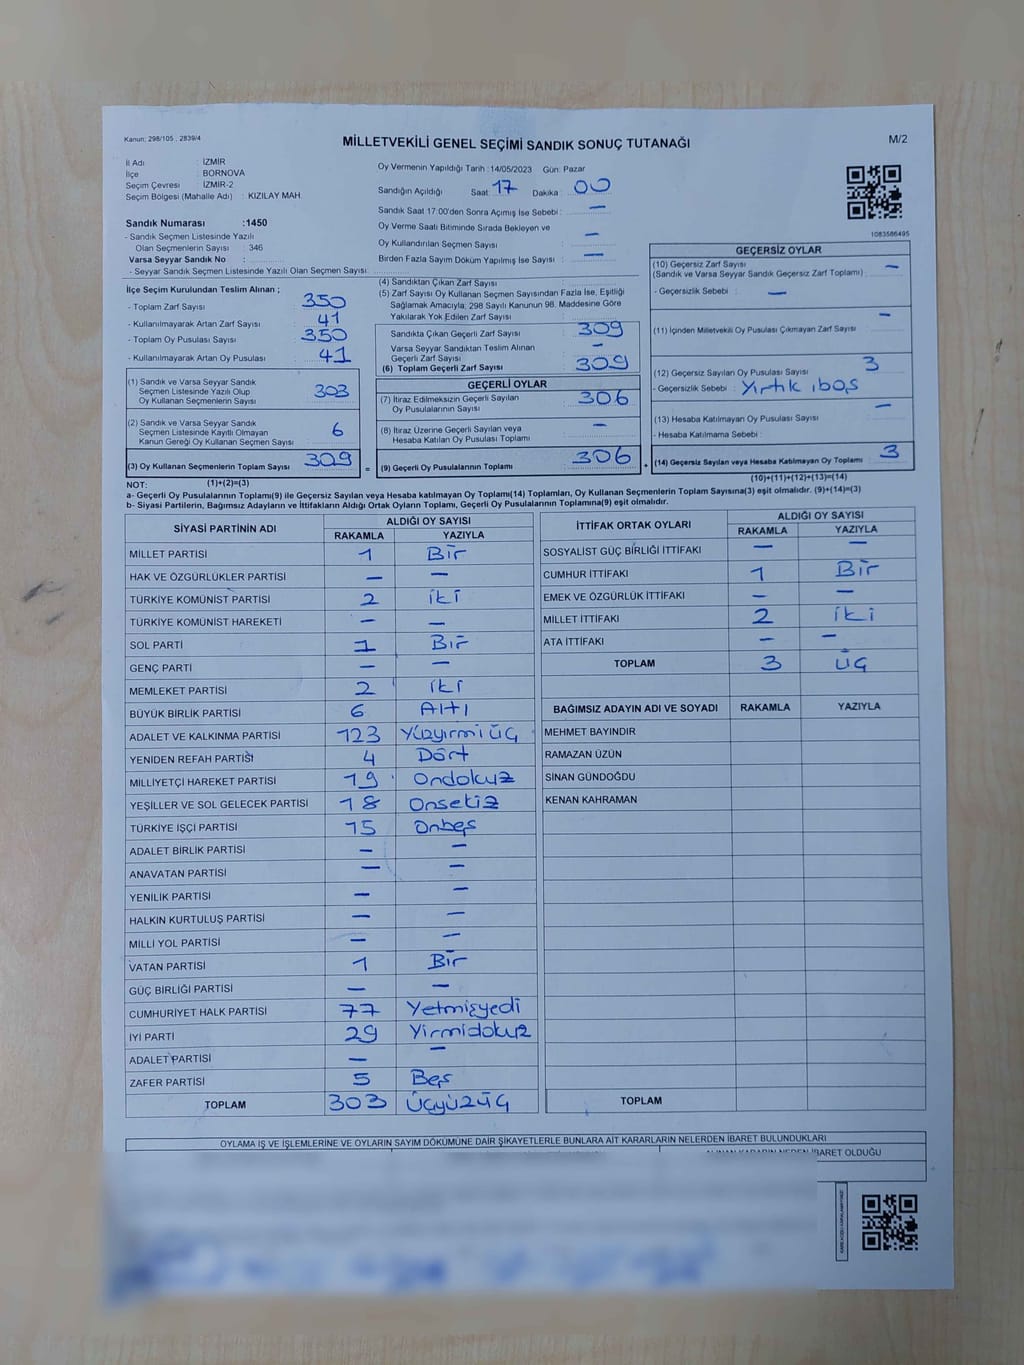 Kanun: 298/105 , 2839/4
MİLLETVEKİLİ GENEL SEÇİMİ SANDIK SONUÇ TUTANAĞI
M/2
İl Adı : İZMİR
İlçe : BORNOVA
Seçim Çevresi : İZMİR-2
Seçim Bölgesi (Mahalle Adı) : KIZILAY MAH.
Oy Vermenin Yapıldığı Tarih :14/05/2023 Gün: Pazar
Sandığın Açıldığı Saat : 17 Dakika : 00
Sandık Saat 17:00'den Sonra Açımış İse Sebebi : —
Oy Verme Saati Bitiminde Sırada Bekleyen ve
Oy Kullandırılan Seçmen Sayısı : —
Birden Fazla Sayım Döküm Yapılmış İse Sayısı : —
1083586495
Sandık Numarası :1450
- Sandık Seçmen Listesinde Yazılı
Olan Seçmenlerin Sayısı : 346
Varsa Seyyar Sandık No :
- Seyyar Sandık Seçmen Listesinde Yazılı Olan Seçmen Sayısı:
İlçe Seçim Kurulundan Teslim Alınan ;
- Toplam Zarf Sayısı : 350
- Kullanılmayarak Artan Zarf Sayısı : 41
- Toplam Oy Pusulası Sayısı : 350
- Kullanılmayarak Artan Oy Pusulası : 41
(1) Sandık ve Varsa Seyyar Sandık
Seçmen Listesinde Yazılı Olup
Oy Kullanan Seçmenlerin Sayısı 303
(2) Sandık ve Varsa Seyyar Sandık
Seçmen Listesinde Kayıtlı Olmayan
Kanun Gereği Oy Kullanan Seçmen Sayısı 6
(3) Oy Kullanan Seçmenlerin Toplam Sayısı 309
(4) Sandıktan Çıkan Zarf Sayısı :
(5) Zarf Sayısı Oy Kullanan Seçmen Sayısından Fazla İse, Eşitliği
Sağlamak Amacıyla; 298 Sayılı Kanunun 98. Maddesine Göre
Yakılarak Yok Edilen Zarf Sayısı :
Sandıkta Çıkan Geçerli Zarf Sayısı : 309
Varsa Seyyar Sandıktan Teslim Alınan
Geçerli Zarf Sayısı : —
(6) Toplam Geçerli Zarf Sayısı : 309
GEÇERLİ OYLAR
(7) İtiraz Edilmeksizin Geçerli Sayılan
Oy Pusulalarının Sayısı : 306
(8) İtiraz Üzerine Geçerli Sayılan veya
Hesaba Katılan Oy Pusulası Toplamı : —
= (9) Geçerli Oy Pusulalarının Toplamı : 306
GEÇERSİZ OYLAR
(10) Geçersiz Zarf Sayısı
(Sandık ve Varsa Seyyar Sandık Geçersiz Zarf Toplamı) : —
- Geçersizlik Sebebi : —
(11) İçinden Milletvekili Oy Pusulası Çıkmayan Zarf Sayısı : —
(12) Geçersiz Sayılan Oy Pusulası Sayısı : 3
- Geçersizlik Sebebi : Yırtık, boş
(13) Hesaba Katılmayan Oy Pusulası Sayısı : —
- Hesaba Katılmama Sebebi :
+ (14) Geçersiz Sayılan veya Hesaba Katılmayan Oy Toplamı : 3
NOT: (1)+(2)=(3)
(10)+(11)+(12)+(13)=(14)
a- Geçerli Oy Pusulalarının Toplamı(9) ile Geçersiz Sayılan veya Hesaba katılmayan Oy Toplamı(14) Toplamları, Oy Kullanan Seçmenlerin Toplam Sayısına(3) eşit olmalıdır. (9)+(14)=(3)
b- Siyasi Partilerin, Bağımsız Adayların ve İttifakların Aldığı Ortak Oyların Toplamı, Geçerli Oy Pusulalarının Toplamına(9) eşit olmalıdır.
SİYASİ PARTİNİN ADI
ALDIĞI OY SAYISI
RAKAMLA YAZIYLA
MİLLET PARTİSİ 1 Bir
HAK VE ÖZGÜRLÜKLER PARTİSİ — —
TÜRKİYE KOMÜNİST PARTİSİ 2 iki
TÜRKİYE KOMÜNİST HAREKETİ — —
SOL PARTİ 1 Bir
GENÇ PARTİ — —
MEMLEKET PARTİSİ 2 iki
BÜYÜK BİRLİK PARTİSİ 6 Altı
ADALET VE KALKINMA PARTİSİ 123 Yüzyirmi üç
YENİDEN REFAH PARTİSİ 4 Dört
MİLLİYETÇİ HAREKET PARTİSİ 19 Ondokuz
YEŞİLLER VE SOL GELECEK PARTİSİ 18 Onsekiz
TÜRKİYE İŞÇİ PARTİSİ 15 Onbeş
ADALET BİRLİK PARTİSİ — —
ANAVATAN PARTİSİ — —
YENİLİK PARTİSİ — —
HALKIN KURTULUŞ PARTİSİ — —
MİLLİ YOL PARTİSİ — —
VATAN PARTİSİ 1 Bir
GÜÇ BİRLİĞİ PARTİSİ — —
CUMHURİYET HALK PARTİSİ 77 Yetmişyedi
İYİ PARTİ 29 Yirmidokuz
ADALET PARTİSİ — —
ZAFER PARTİSİ 5 Beş
TOPLAM 303 Üçyüzüç
İTTİFAK ORTAK OYLARI
ALDIĞI OY SAYISI
RAKAMLA YAZIYLA
SOSYALİST GÜÇ BİRLİĞİ İTTİFAKI — —
CUMHUR İTTİFAKI 1 Bir
EMEK VE ÖZGÜRLÜK İTTİFAKI — —
MİLLET İTTİFAKI 2 iki
ATA İTTİFAKI — —
TOPLAM 3 üç
BAĞIMSIZ ADAYIN ADI VE SOYADI RAKAMLA YAZIYLA
MEHMET BAYINDIR
RAMAZAN ÜZÜN
SİNAN GÜNDOĞDU
KENAN KAHRAMAN
TOPLAM
OYLAMA İŞ VE İŞLEMLERİNE VE OYLARIN SAYIM DÖKÜMÜNE DAİR ŞİKAYETLERLE BUNLARA AİT KARARLARIN NELERDEN İBARET BULUNDUKLARI
OLDUĞU